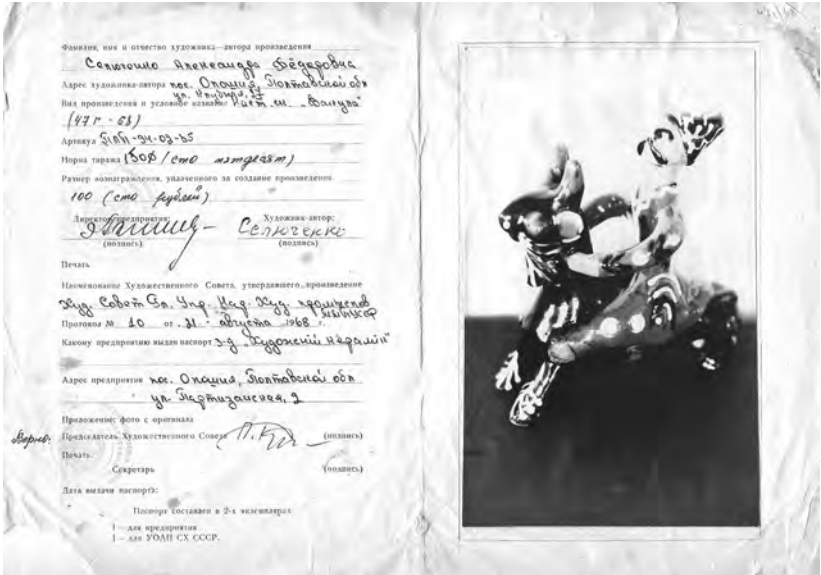 Фамилия, имя и отчество художника—автора произведения
Селюченко Александра Фёдоровна
Адрес художника-автора пос. Опошня, Полтавской обл
ул.
Вид произведения и условное название наст. ск.
(47 г - 68)
Артикул
Норма тиража 150ф / сто пятдесят)
Размер вознаграждения, уплаченного за создание произведения
100 (сто рублей)
Директор предприятия: Художник-автор:
Селюченко
(подпись) (подпись)
Печать
Наименование Художественного Совета, утвердившего произведение
Худ. Совет Упр. Над. Худ. промыслов
Протокол № 10 от „31" августа 1968 г.
Какому предприятию выдан паспорт з-д „Художний керамік"
Адрес предприятия пос. Опошня, Полтавской обл
ул. Партизанская, 2
Приложение: фото с оригинала
Верно: Председатель Художественного Совета (подпись)
Печать
Секретарь (подпись)
Дата выдачи паспорта:
Паспорт составлен в 2-х экземплярах
1 — для предприятия
1 — для УОАП СХ СССР.